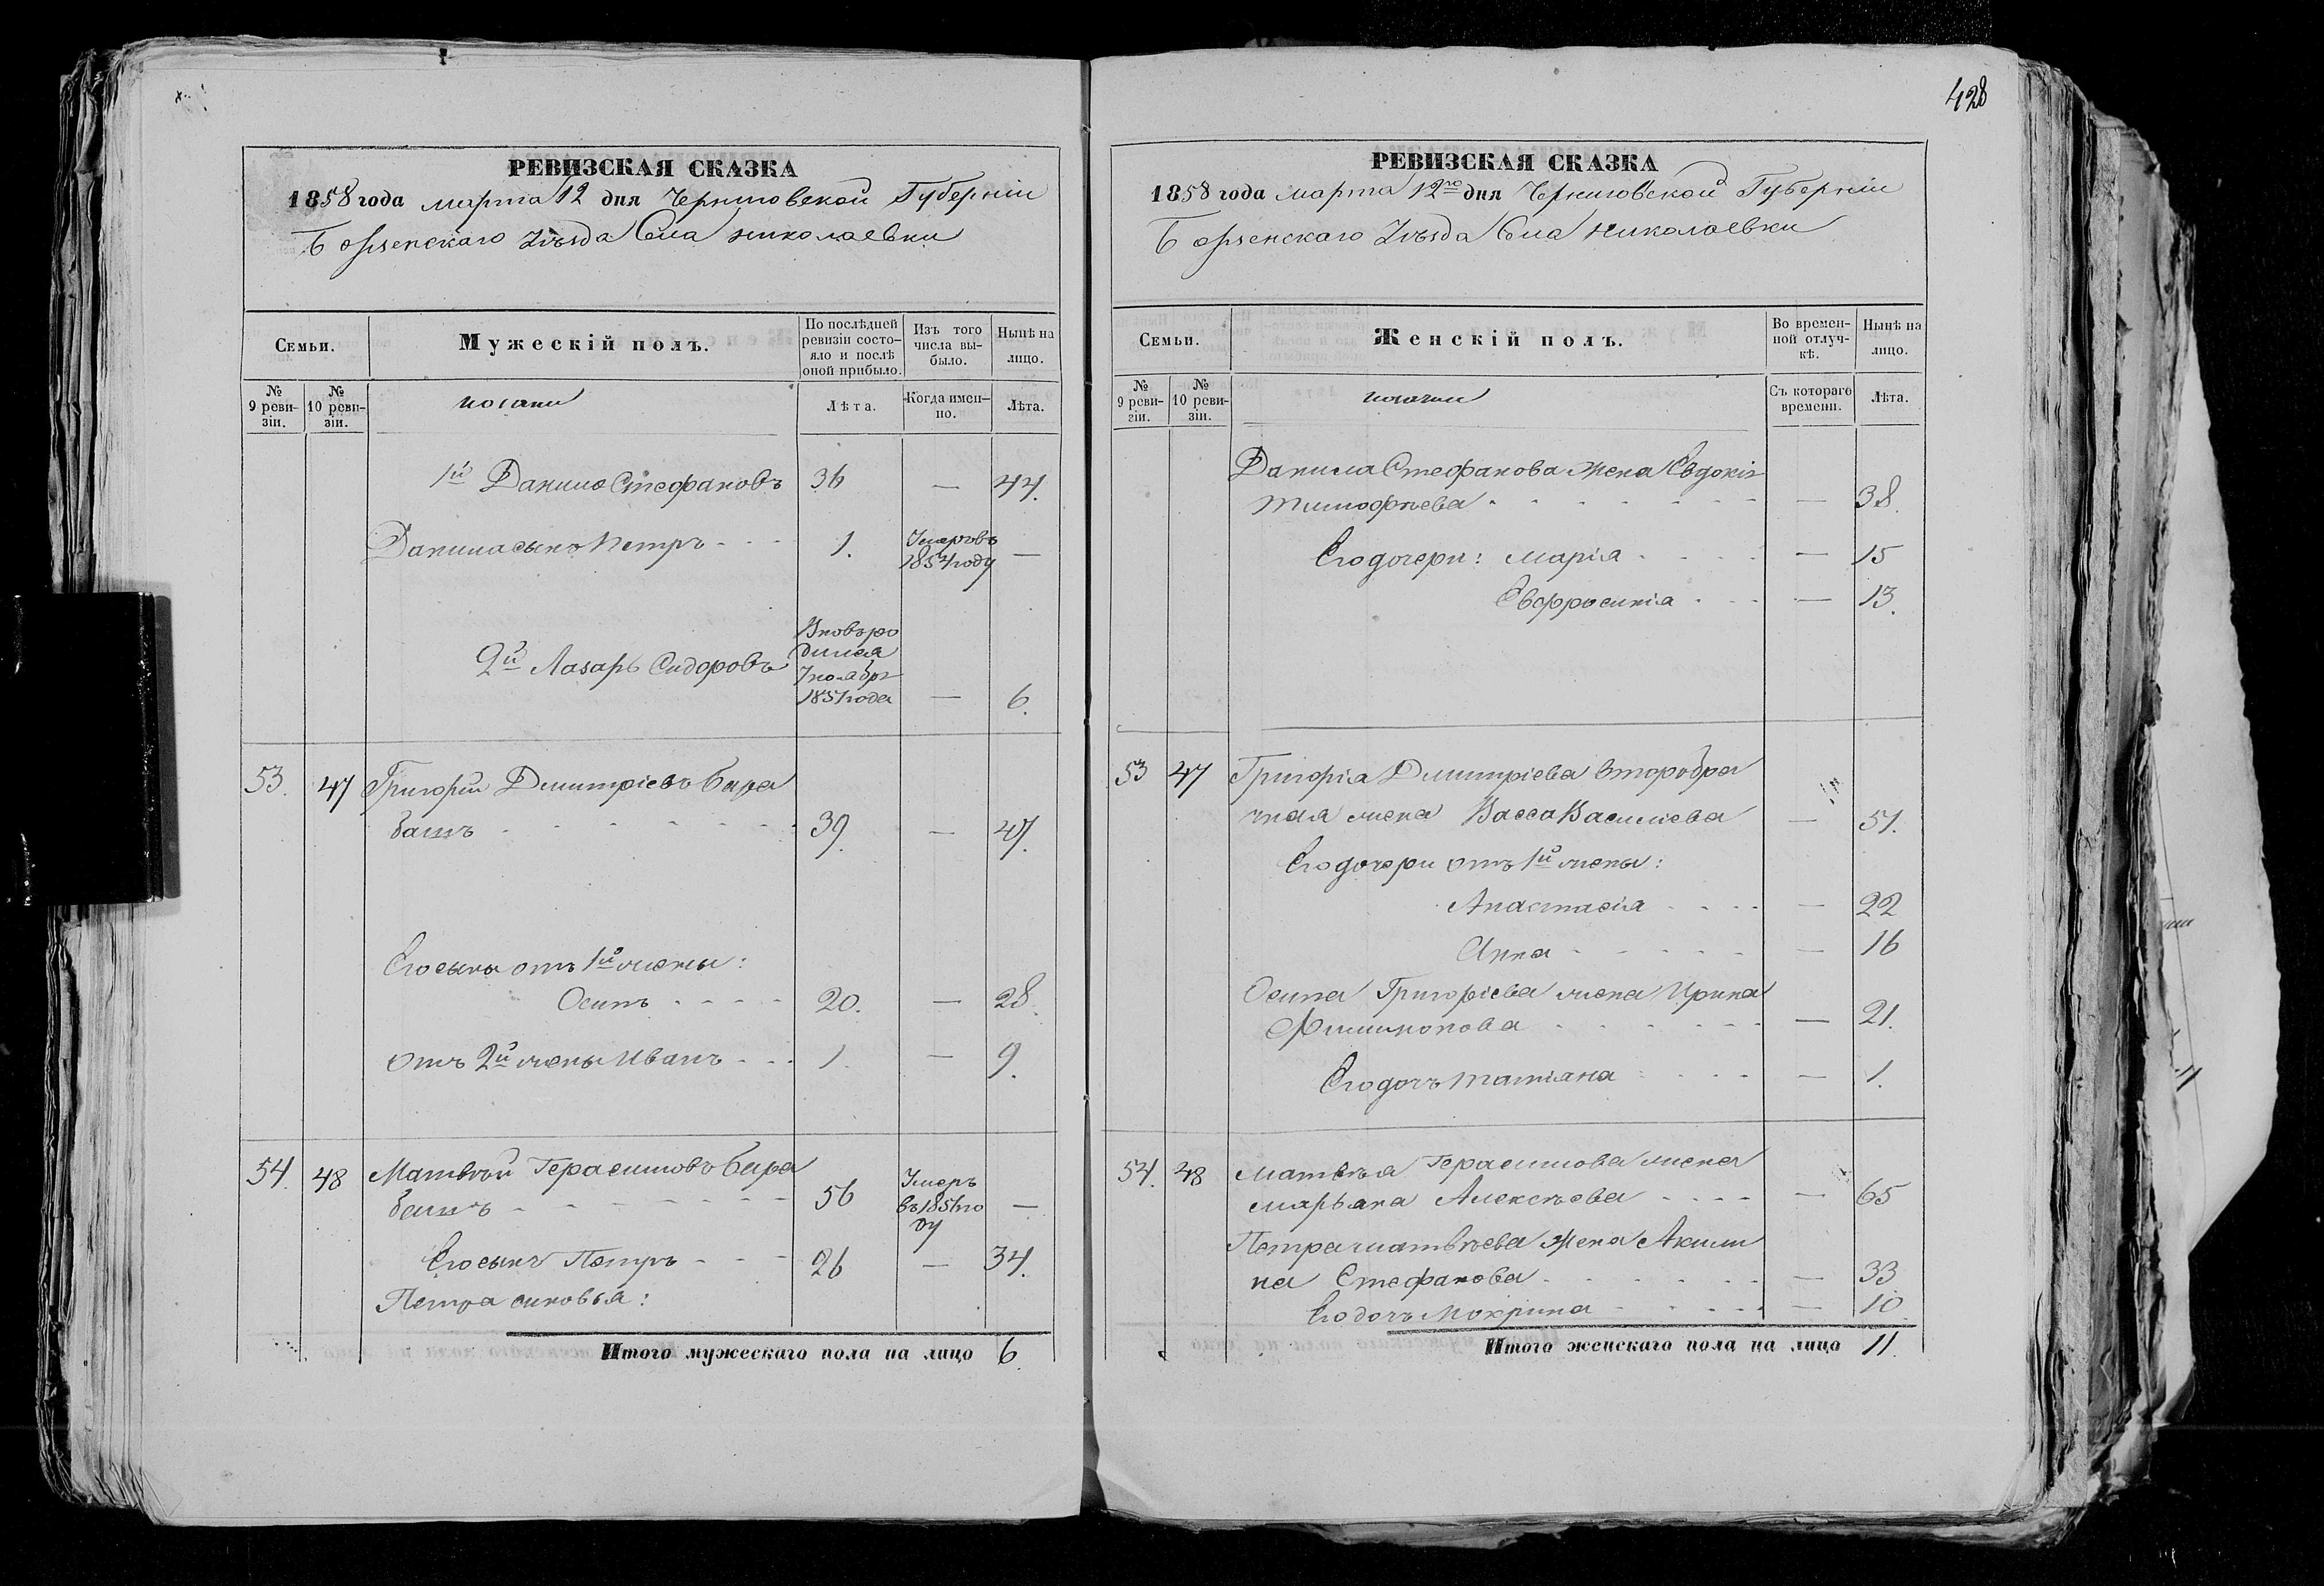 428
РЕВИЗСКАЯ СКАЗКА
1858 года марта 12 дня Черниговской Губерніи
Борзенскаго Уѣзда Села Николаевки
Семьи.
Мужескій полъ.
По послѣдней ревизіи состояло и послѣ оной прибыло.
Изъ того числа выбыло.
Нынѣ на лицо.
№ 9 ревизіи.
№ 10 ревизіи.
Лѣта.
Когда именно.
Лѣта.
1й Данило Стефановъ 36 — 44.
Данила сынъ Петръ - - - 1. Умеръ въ —
1854 году
Вновь ро
дился
2й Лазарь Сидоровъ 7 ноября
1851 года — 6.
53. 47 Григорій Дмитріевъ Бара
башъ - - - - - - - 39. — 47.
Его сыны отъ 1й жены:
Осипъ - - - - 20. — 28.
отъ 2й жены Иванъ - - - 1. — 9.
54. 48 Матвѣй Герасимовъ Бара
башъ - - - - - - - 56 Умеръ —
въ 1851 го
ду
Его сынъ Петръ - - - 26 — 34.
Петра сыновья:
Итого мужескаго пола на лицо 6.
РЕВИЗСКАЯ СКАЗКА
1858 года марта 12го дня Черниговской Губерніи
Борзенскаго Уѣзда Села Николаевки
Семьи.
Женскій полъ.
Во временной отлучкѣ.
Нынѣ на лицо.
№ 9 ревизіи.
№ 10 ревизіи.
Съ котораго времени.
Лѣта.
Данила Стефанова жена Евдокія
Тимофѣева - - - - - - - — 38.
Его дочери: Марія - - - - — 15
Евфросинія - - - — 13.
53 47 Григорія Дмитріева второбра
чная жена Васса Василіева — 51.
Его дочери отъ 1й жены:
Анастасія - - - - — 22
Анна - - - - - — 16
Осипа Григоріева жена Ирина
Филимонова - - - - - - — 21.
Его дочь Татіана - - - - — 1.
54. 48 Матвѣя Герасимова жена
Марьяна Алексѣева - - - - — 65
Петра Матвѣева жена Акили
на Стефанова - - - - - - — 33
Его дочь Мокрина - - - - - — 10
Итого женскаго пола на лицо 11.